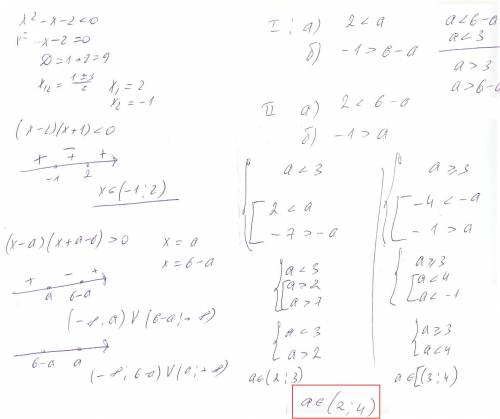 x² - x - 2 < 0
x² - x - 2 = 0
D = 1 + 8 = 9
x₁₂ = (1 ± 3)/2
x₁ = 2
x₂ = -1
(x-2)(x+1) < 0
+ - +
-1 2
x ∈ (-1; 2)
(x-a)(x+a-6) > 0
x = a
x = 6-a
+ - +
a 6-a
(-∞, a) ∨ (6-a; +∞)
6-a a
(-∞; 6-a) ∨ (a; +∞)
I : а) 2 < a
б) -1 > 6-a
a < 6-a
a < 3
a > 3
a > 6-a
II а) 2 < 6-a
б) -1 > a
a < 3
2 < a
-7 > -a
a < 3
a > 2
a > 7
a < 3
a > 2
a ∈ (2; 3)
a ≥ 3
-4 < -a
-1 > a
a ≥ 3
a < 4
a < -1
a ≥ 3
a < 4
a ∈ [(3; 4)
a ∈ (2; 4)